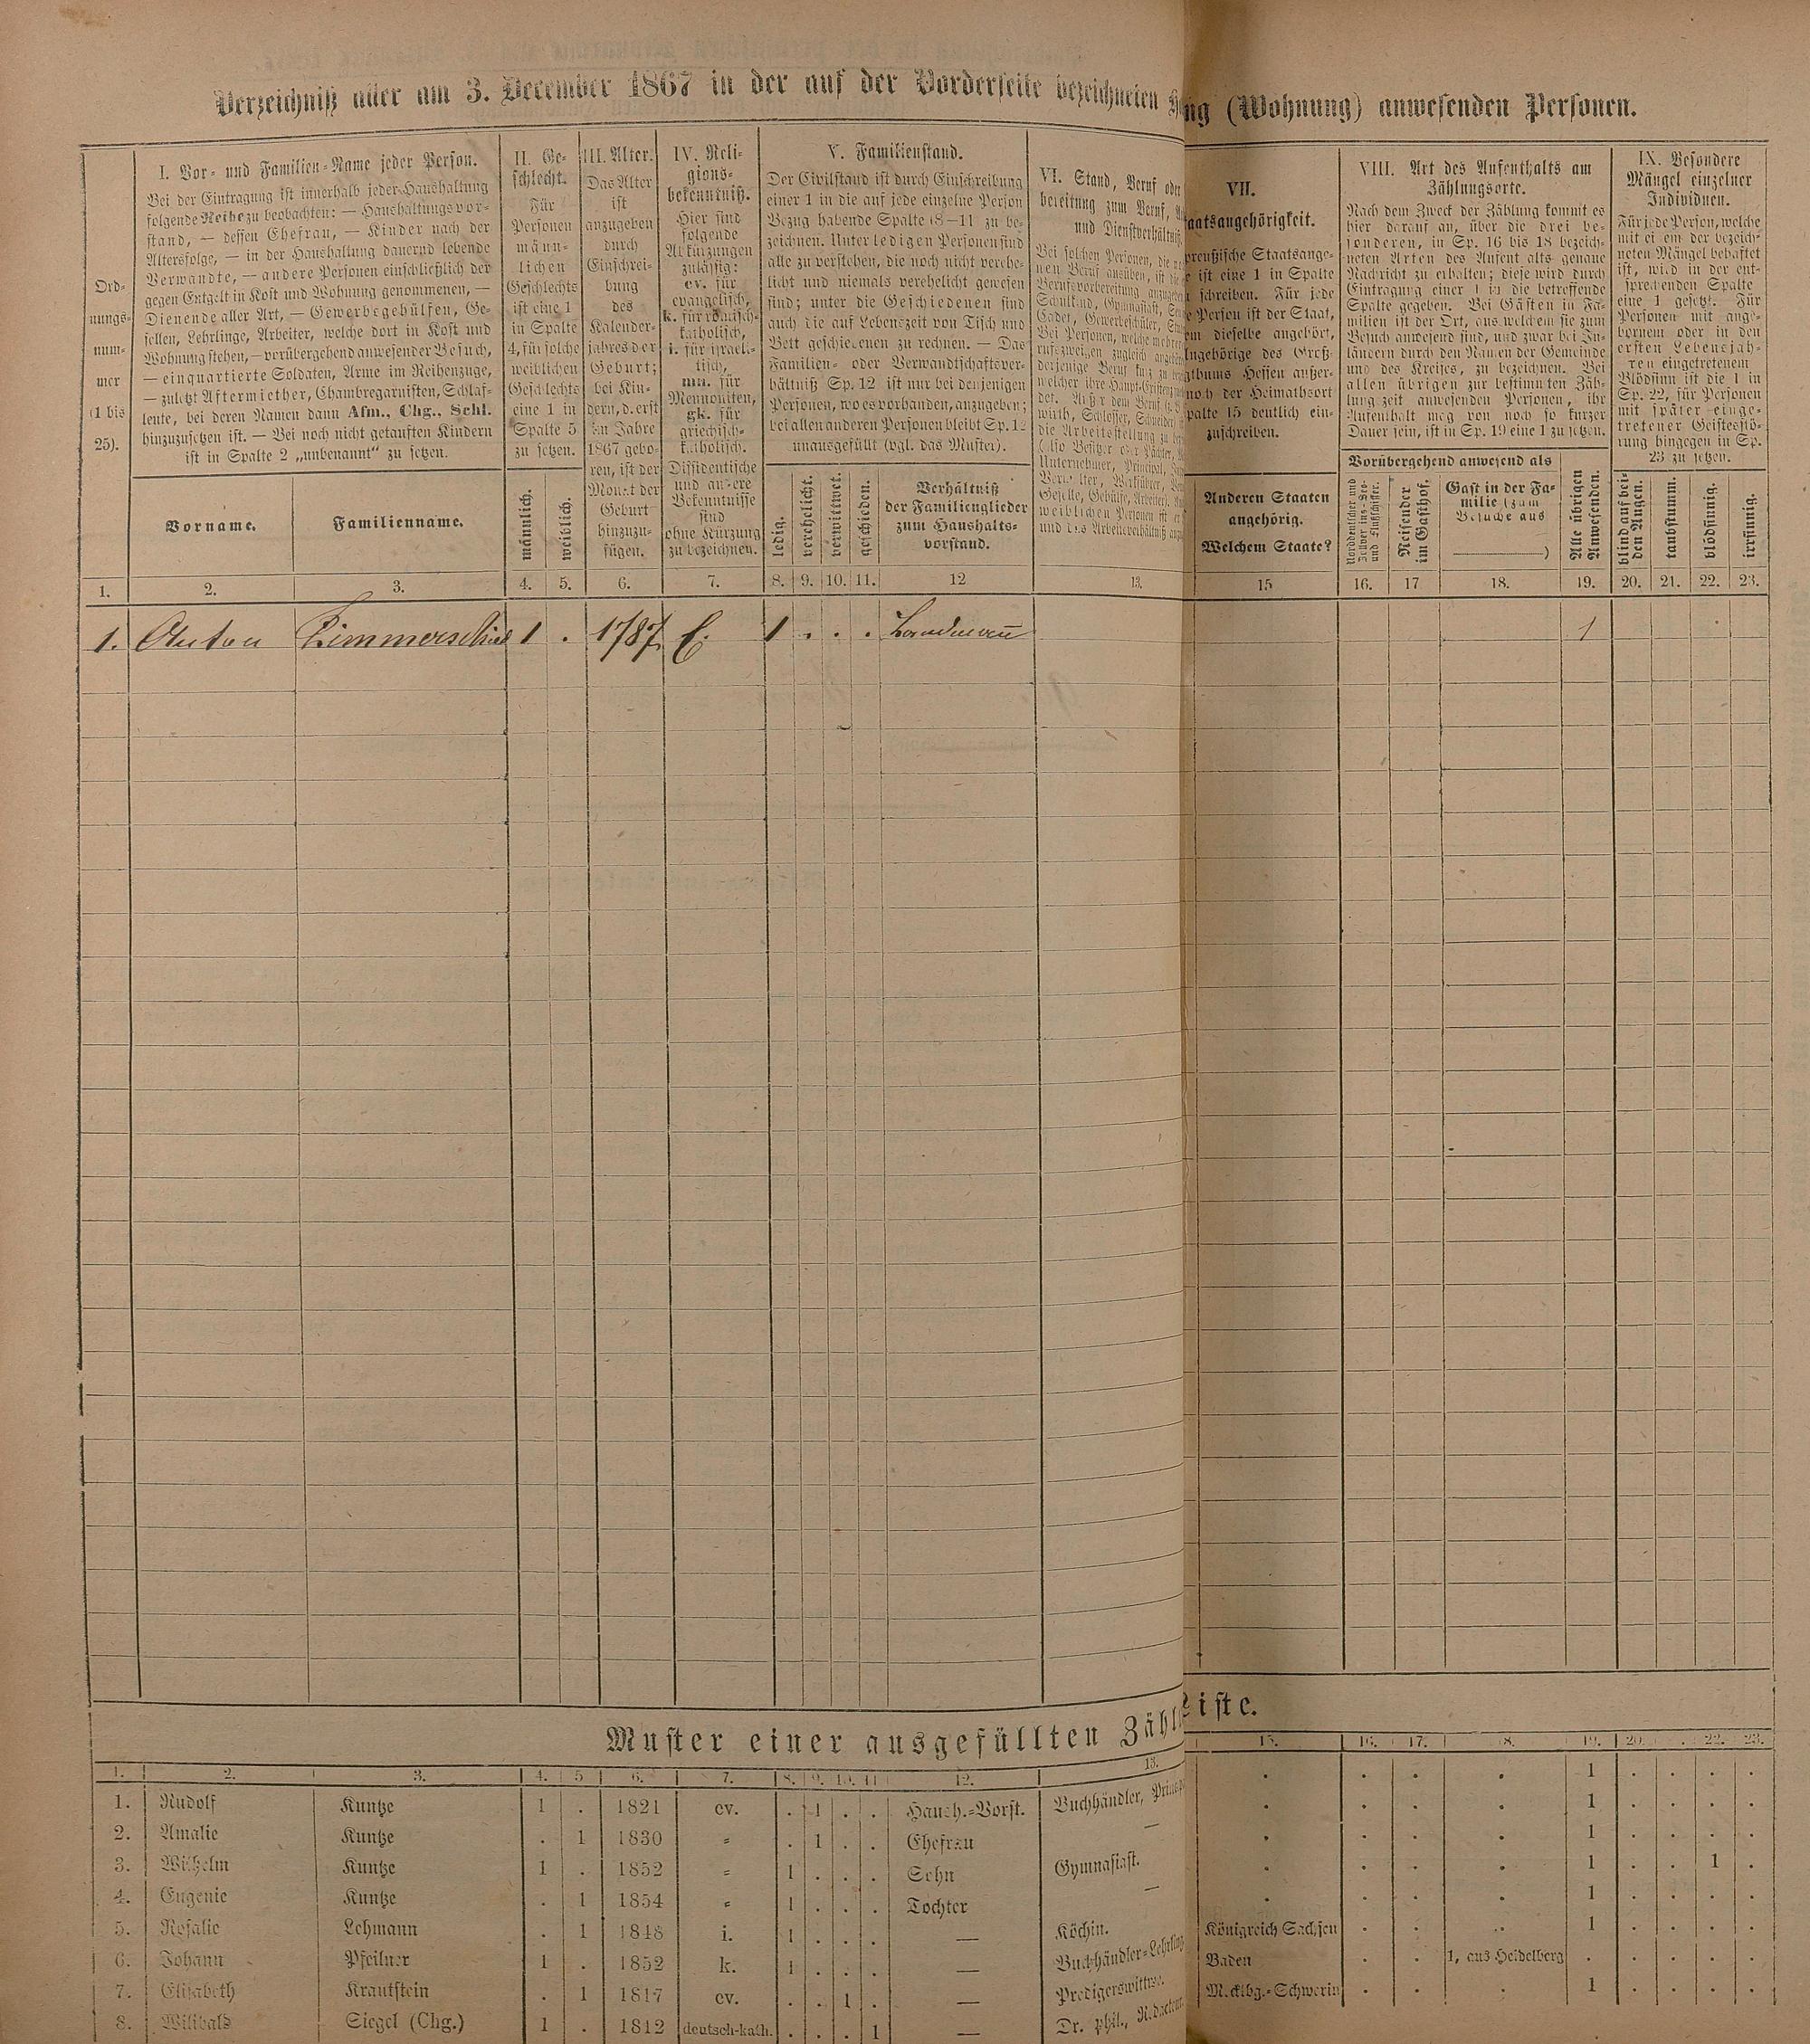 Verzeichniß aller am 3. December 1867 in der auf der Vorderseite bezeichneten
ng (Wohnung) anwesenden Personen.
Ord-
nungs-
num-
mer
(1 bis
25).
I. Vor- und Familien-Name jeder Person.
Bei der Eintragung ist innerhalb jeder Haushaltung
folgende Reihe zu beobachten: — Haushaltungsvor-
stand, — dessen Ehefrau, — Kinder nach der
Altersfolge, — in der Haushaltung dauernd lebende
Verwandte, — andere Personen einschließlich der
gegen Entgelt in Kost und Wohnung genommenen, —
Dienende aller Art, — Gewerbegehülfen, Ge-
sellen, Lehrlinge, Arbeiter, welche dort in Kost und
Wohnung stehen, — vorübergehend anwesender Besuch,
— einquartierte Soldaten, Arme im Reihenzuge,
— zuletzt Aftermiether, Chambregarnisten, Schlaf-
leute, bei deren Namen dann Afm., Chg., Schl.
hinzuzusetzen ist. — Bei noch nicht getauften Kindern
ist in Spalte 2 „unbenannt“ zu setzen.
Vorname.
Familienname.
II. Ge-
schlecht.
Für
Personen
männ-
lichen
Geschlechts
ist eine 1
in Spalte
4, für solche
weiblichen
Geschlechts
eine 1 in
Spalte 5
zu setzen.
männlich.
weiblich.
III. Alter.
Das Alter
ist
anzugeben
durch
Einschrei-
bung
des
Kalender-
jahres der
Geburt;
bei Kin-
dern, d. erst
im Jahre
1867 gebo-
ren, ist der
Monat der
Geburt
hinzuzu-
fügen.
IV. Reli-
gions-
bekenntniß.
Hier sind
folgende
Abkürzungen
zulässig:
ev. für
evangelisch,
k. für römisch-
katholisch,
i. für israeli-
tisch,
mn. für
Mennoniten,
gk. für
griechisch-
katholisch.
Dissidentische
und andere
Bekenntnisse
sind
ohne Kürzung
zu bezeichnen.
V. Familienstand.
Der Civilstand ist durch Einschreibung
einer 1 in die auf jede einzelne Person
Bezug habende Spalte (8—11) zu be-
zeichnen. Unter ledigen Personen sind
alle zu verstehen, die noch nicht verehe-
licht und niemals verehelicht gewesen
sind; unter die Geschiedenen sind
auch die auf Lebenszeit von Tisch und
Bett geschiedenen zu rechnen. — Das
Familien- oder Verwandtschaftsver-
hältniß Sp. 12 ist nur bei denjenigen
Personen, wo es vorhanden, anzugeben;
bei allen anderen Personen bleibt Sp. 12
unausgefüllt (vgl. das Muster).
ledig.
verehelicht.
verwittwet.
geschieden.
Verhältniß
der Familienglieder
zum Haushalts-
vorstand.
VI. Stand, Beruf oder
bereitung zum Beruf,
und Dienstverhältniß.
Bei solchen Personen, die
nen Beruf ausüben, ist die
Berufsvorbereitung anzugeben
Schulkind, Gymnasiast,
Cadet, Gewerbeschüler,
Bei Personen, welche mehreren
rufszweigen zugleich angehören
derjenige Beruf zu
welcher ihre Haupt-Existenz
det. Außer dem Beruf
wirth, Schlosser, Schneider
die Arbeitsstellung zu
(also Besitzer oder Pächter,
Unternehmer, Principal,
Verwalter, Werkführer,
Geselle, Gehülfe, Arbeiter).
weiblichen Personen ist
und das Arbeitsverhältniß
VII.
aatsangehörigkeit.
preußische Staatsange-
ist eine 1 in Spalte
schreiben. Für jede
Person ist der Staat,
em dieselbe angehört,
Angehörige des Groß-
gthums Hessen außer-
noch der Heimathsort
palte 15 deutlich ein-
zuschreiben.
Anderen Staaten
angehörig.
Welchem Staate?
VIII. Art des Aufenthalts am
Zählungsorte.
Nach dem Zweck der Zählung kommt es
hier darauf an, über die drei be-
sonderen, in Sp. 16 bis 18 bezeich-
neten Arten des Aufenthalts genaue
Nachricht zu erhalten; diese wird durch
Eintragung einer 1 in die betreffende
Spalte gegeben. Bei Gästen in Fa-
milien ist der Ort, aus welchem sie zum
Besuch anwesend sind, und zwar bei In-
ländern durch den Namen der Gemeinde
und des Kreises, zu bezeichnen. Bei
allen übrigen zur bestimmten Zäh-
lungszeit anwesenden Personen, ihr
Aufenthalt mag von noch so kurzer
Dauer sein, ist in Sp. 19 eine 1 zu setzen.
Vorübergehend anwesend als
Reisender
im Gasthof.
Gast in der Fa-
milie (zum
Besuche aus
)
Alle übrigen
Anwesenden.
IX. Besondere
Mängel einzelner
Individuen.
Für jede Person, welche
mit einem der bezeich-
neten Mängel behaftet
ist, wird in der ent-
sprechenden Spalte
eine 1 gesetzt. Für
Personen mit ange-
bornem oder in den
ersten Lebensjah-
ren eingetretenem
Blödsinn ist die 1 in
Sp. 22, für Personen
mit später einge-
tretener Geistesstö-
rung hingegen in Sp.
23 zu setzen.
blind auf bei-
den Augen.
taubstumm.
blödsinnig.
irrsinnig.
1. 2. 3. 4. 5. 6. 7. 8. 9. 10. 11. 12 13. 15 16. 17 18. 19. 20. 21. 22. 23.
1. Anton Zimmerschied 1 . 1787 1 . . . Landmann 1
Muster einer ausgefüllten Zähl
Liste.
1. 2. 3. 4. 5 6. 7. 8. 9. 10. 11 12. 13. 15. 16. 17. 18. 19. 20. . 22. 23.
1. Rudolf Kuntze 1 . 1821 ev. . 1 . . Haush.-Vorst. Buchhändler, . . . . 1 . . . .
2. Amalie Kuntze . 1 1830 „ . 1 . . Ehefrau — . . . . 1 . . . .
3. Wilhelm Kuntze 1 . 1852 „ 1 . . . Sohn Gymnasiast. . . . . 1 . . . .
4. Eugenie Kuntze . 1 1854 „ 1 . . . Tochter — . . . . 1 . . 1 .
5. Rosalie Lehmann . 1 1848 i. 1 . . . — Köchin. . . . . 1 . . . .
6. Johann Pfeilner 1 . 1852 k. 1 . . . — Buchhändler-Lehrling Königreich Sachsen . . . 1 . . . .
7. Elisabeth Krautstein . 1 1817 ev. . . 1 . — Predigerswittwe. Baden . . 1, aus Heidelberg . . . . .
8. Wilibald Siegel (Chg.) 1 . 1812 deutsch-kath. . . . 1 — Dr. phil., Redacteur Mcklbg.-Schwerin . . . 1 . . . .